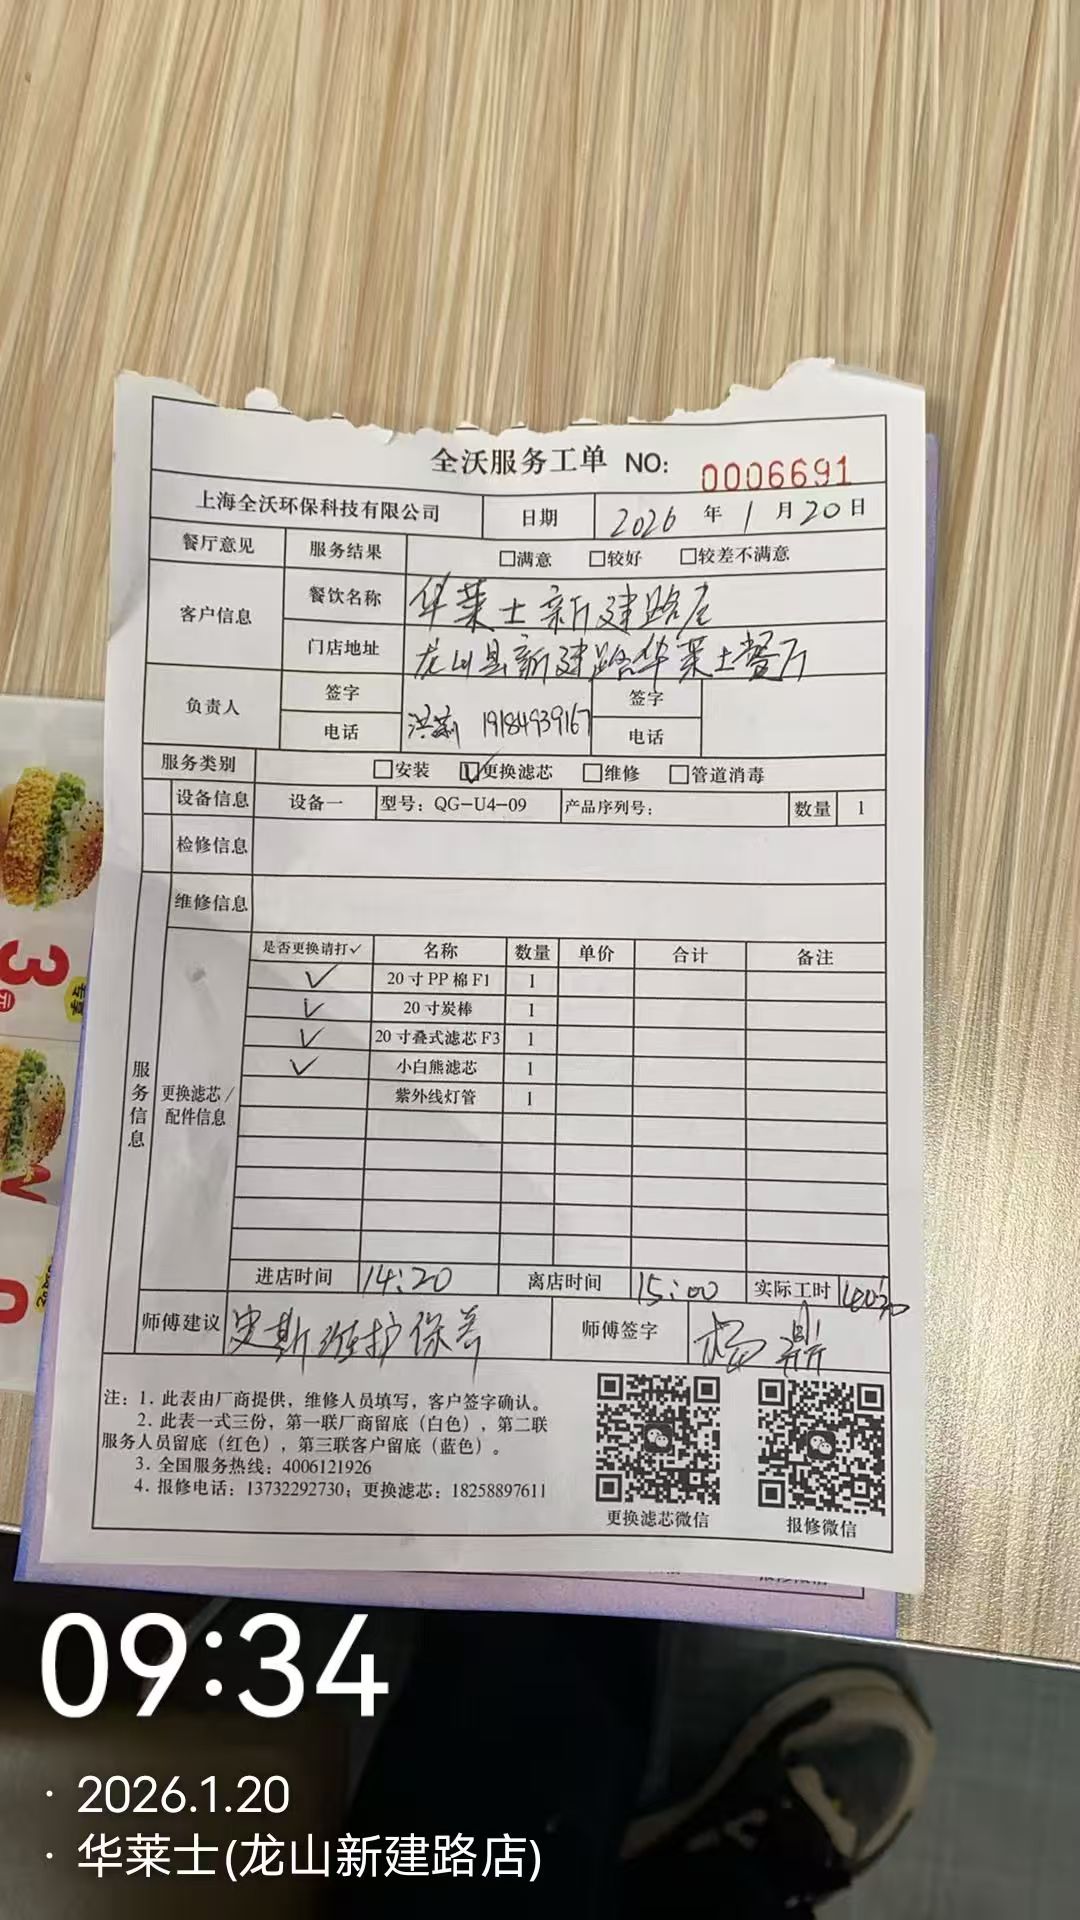 全沃服务工单 NO: 0006691
上海全沃环保科技有限公司 日期 2026 年 1 月 20 日
餐厅意见 服务结果 □满意 □较好 □较差不满意
客户信息 餐饮名称 华莱士新建路店
门店地址 龙山县新建路华莱士餐厅
负责人 签字 签字
电话 19184939167 电话
服务类别 □安装 ☑更换滤芯 □维修 □管道消毒
设备信息 设备一 型号：QG-U4-09 产品序列号： 数量 1
检修信息
维修信息
服务信息
更换滤芯/配件信息
是否更换请打✓ 名称 数量 单价 合计 备注
✓ 20寸PP棉F1 1
✓ 20寸炭棒 1
✓ 20寸叠式滤芯F3 1
✓ 小白熊滤芯 1
紫外线灯管 1
进店时间 14:20 离店时间 15:00 实际工时
师傅建议 维护保养 师傅签字 杨鼎
注：1. 此表由厂商提供，维修人员填写，客户签字确认。
2. 此表一式三份，第一联厂商留底（白色），第二联
服务人员留底（红色），第三联客户留底（蓝色）。
3. 全国服务热线：4006121926
4. 报修电话：13732292730；更换滤芯：18258897611
更换滤芯微信 报修微信
3
元
09:34
· 2026.1.20
· 华莱士(龙山新建路店)